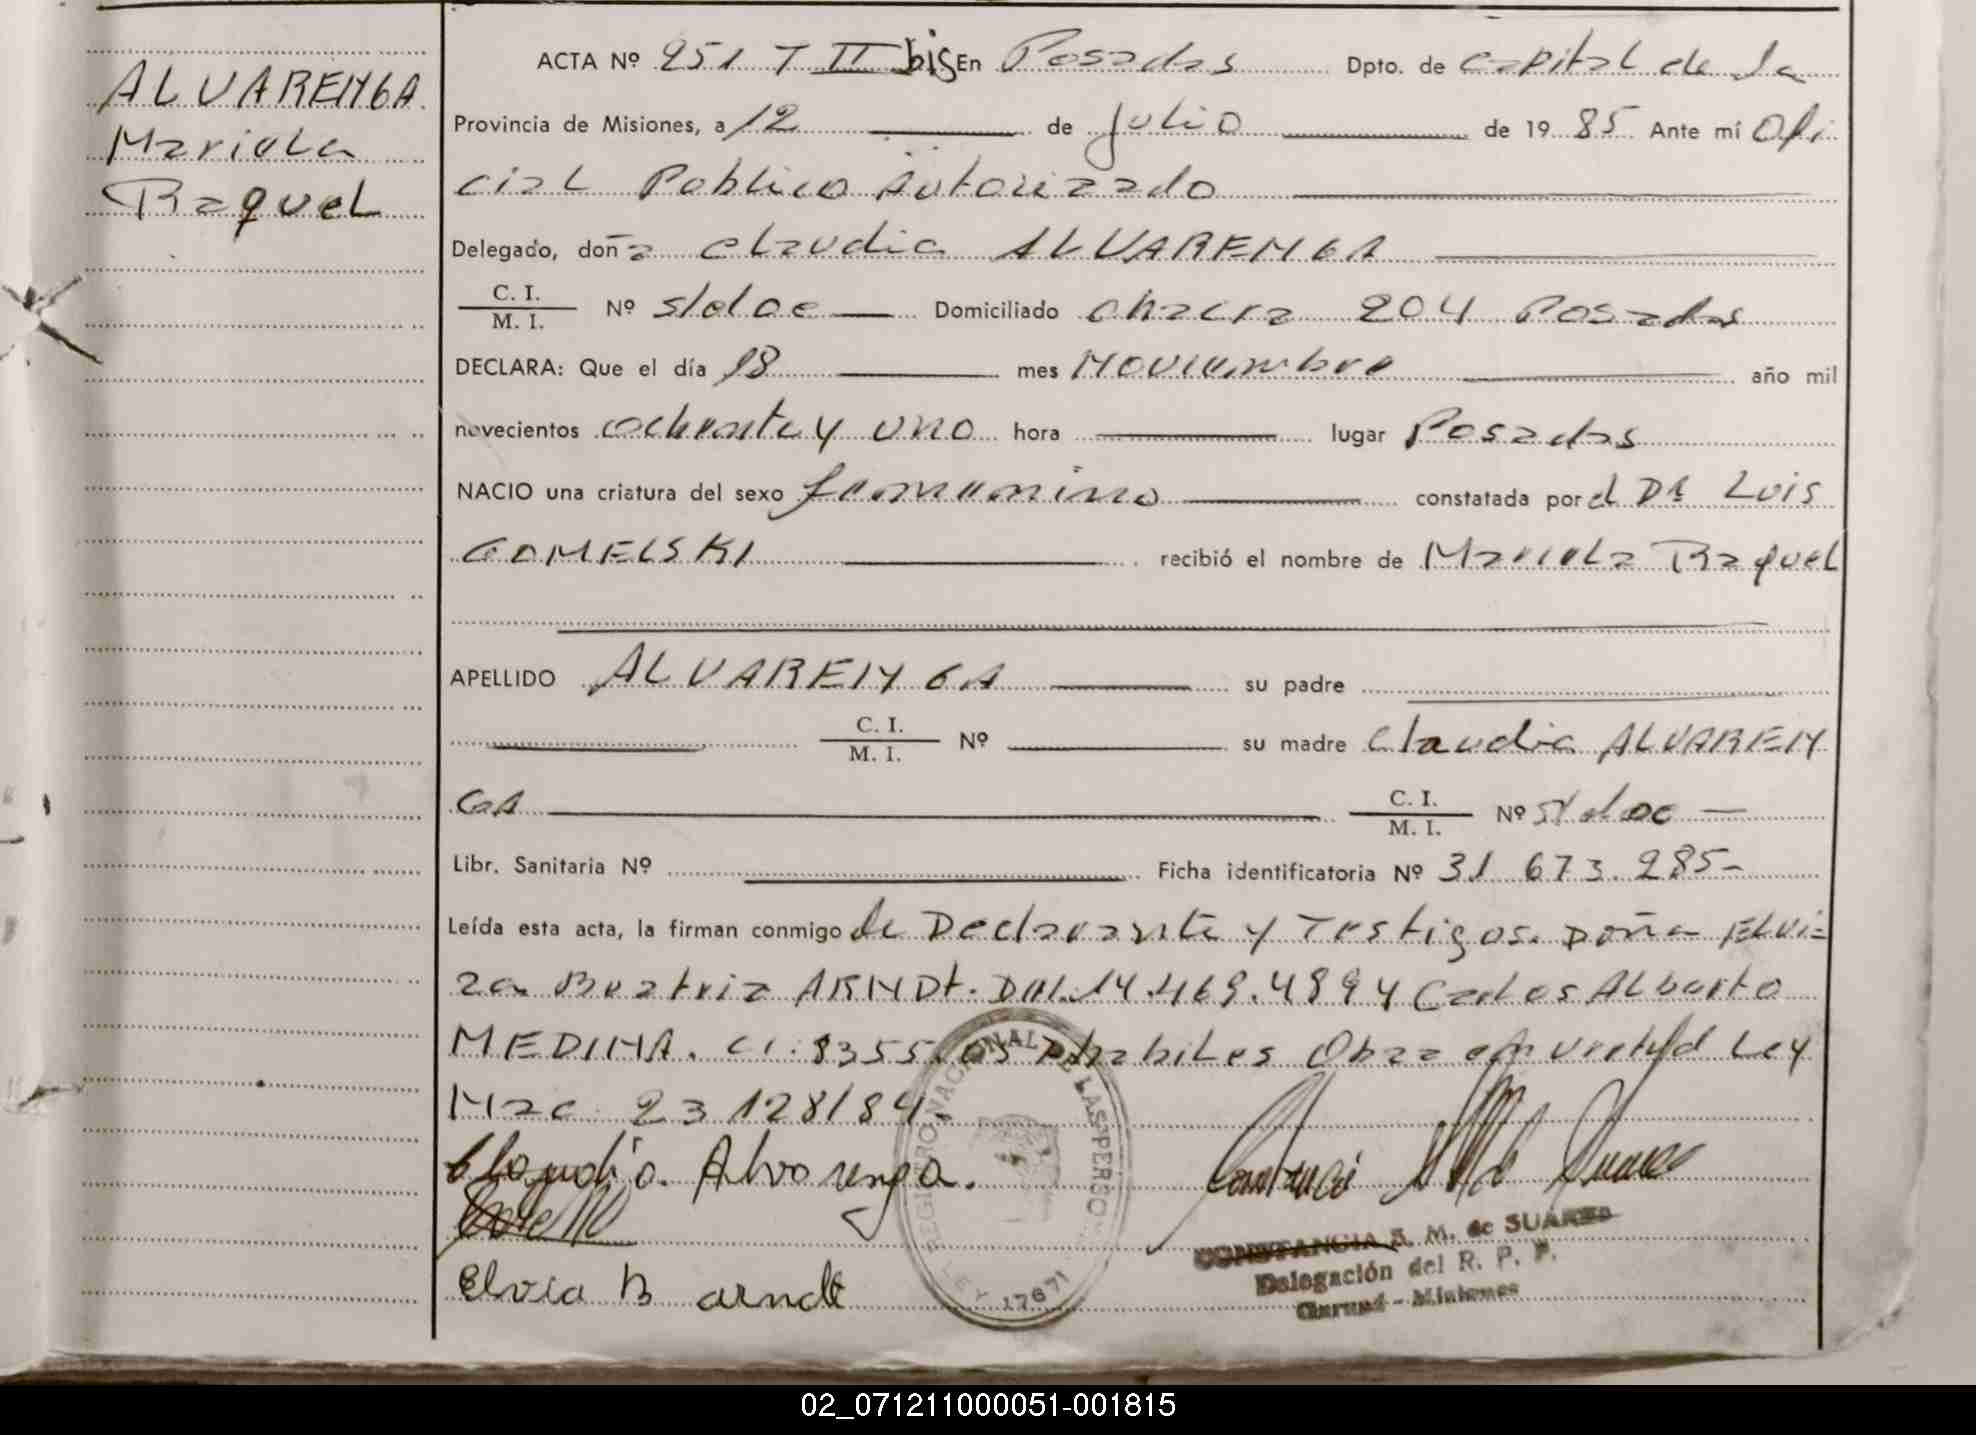 ALVARENGA
Mariela
Raquel
ACTA Nº 251 T II bis En Posadas Dpto. de Capital de la
Provincia de Misiones, a 12 de Julio de 19 85 Ante mí Ofi
cial Publico Autorizado
Delegado, doña Claudia ALVARENGA
C. I. / M. I. Nº s/doc Domiciliado Chacra 204 Posadas
DECLARA: Que el día 18 mes Noviembre año mil
novecientos ochenta y uno hora lugar Posadas
NACIO una criatura del sexo femenino constatada por el DR Luis
GOMELSKI recibió el nombre de Mariela Raquel
APELLIDO ALVARENGA su padre
C. I. / M. I. Nº su madre Claudia ALVAREN
GA C. I. / M. I. Nº s/doc
Libr. Sanitaria Nº Ficha identificatoria Nº 31.673.285-
Leída esta acta, la firman conmigo la Declarante y Testigos. Doña Elvi=
ra Beatriz ARNDt. DNI. 14.469.489 y Carlos Alberto
MEDINA. CI. 8355 habiles Obra en virtud Ley
Nac 23128/84.
Claudia. Alvarenga.
Elvia B arndt
REGISTRO NACIONAL DE LAS PERSO
LEY 17671
CONSTANCIA S. M. de SUAREZ
Delegación del R. P. P.
Misiones
02_071211000051-001815